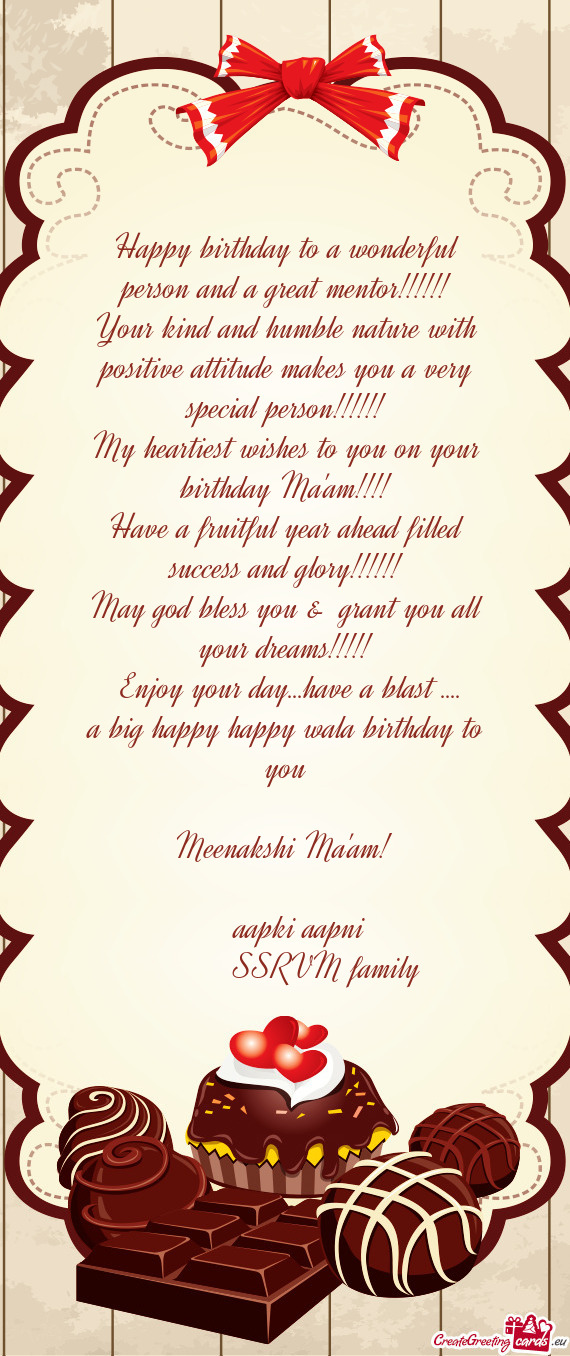 Happy birthday to a wonderful
person and a great mentor!!!!!!
Your kind and humble nature with
positive attitude makes you a very
special person!!!!!!
My heartiest wishes to you on your
birthday Ma'am!!!!
Have a fruitful year ahead filled
success and glory!!!!!!
May god bless you & grant you all
your dreams!!!!!
Enjoy your day...have a blast ....
a big happy happy wala birthday to
you
Meenakshi Ma'am!
aapki aapni
SSRVM family
CreateGreetingcards.eu